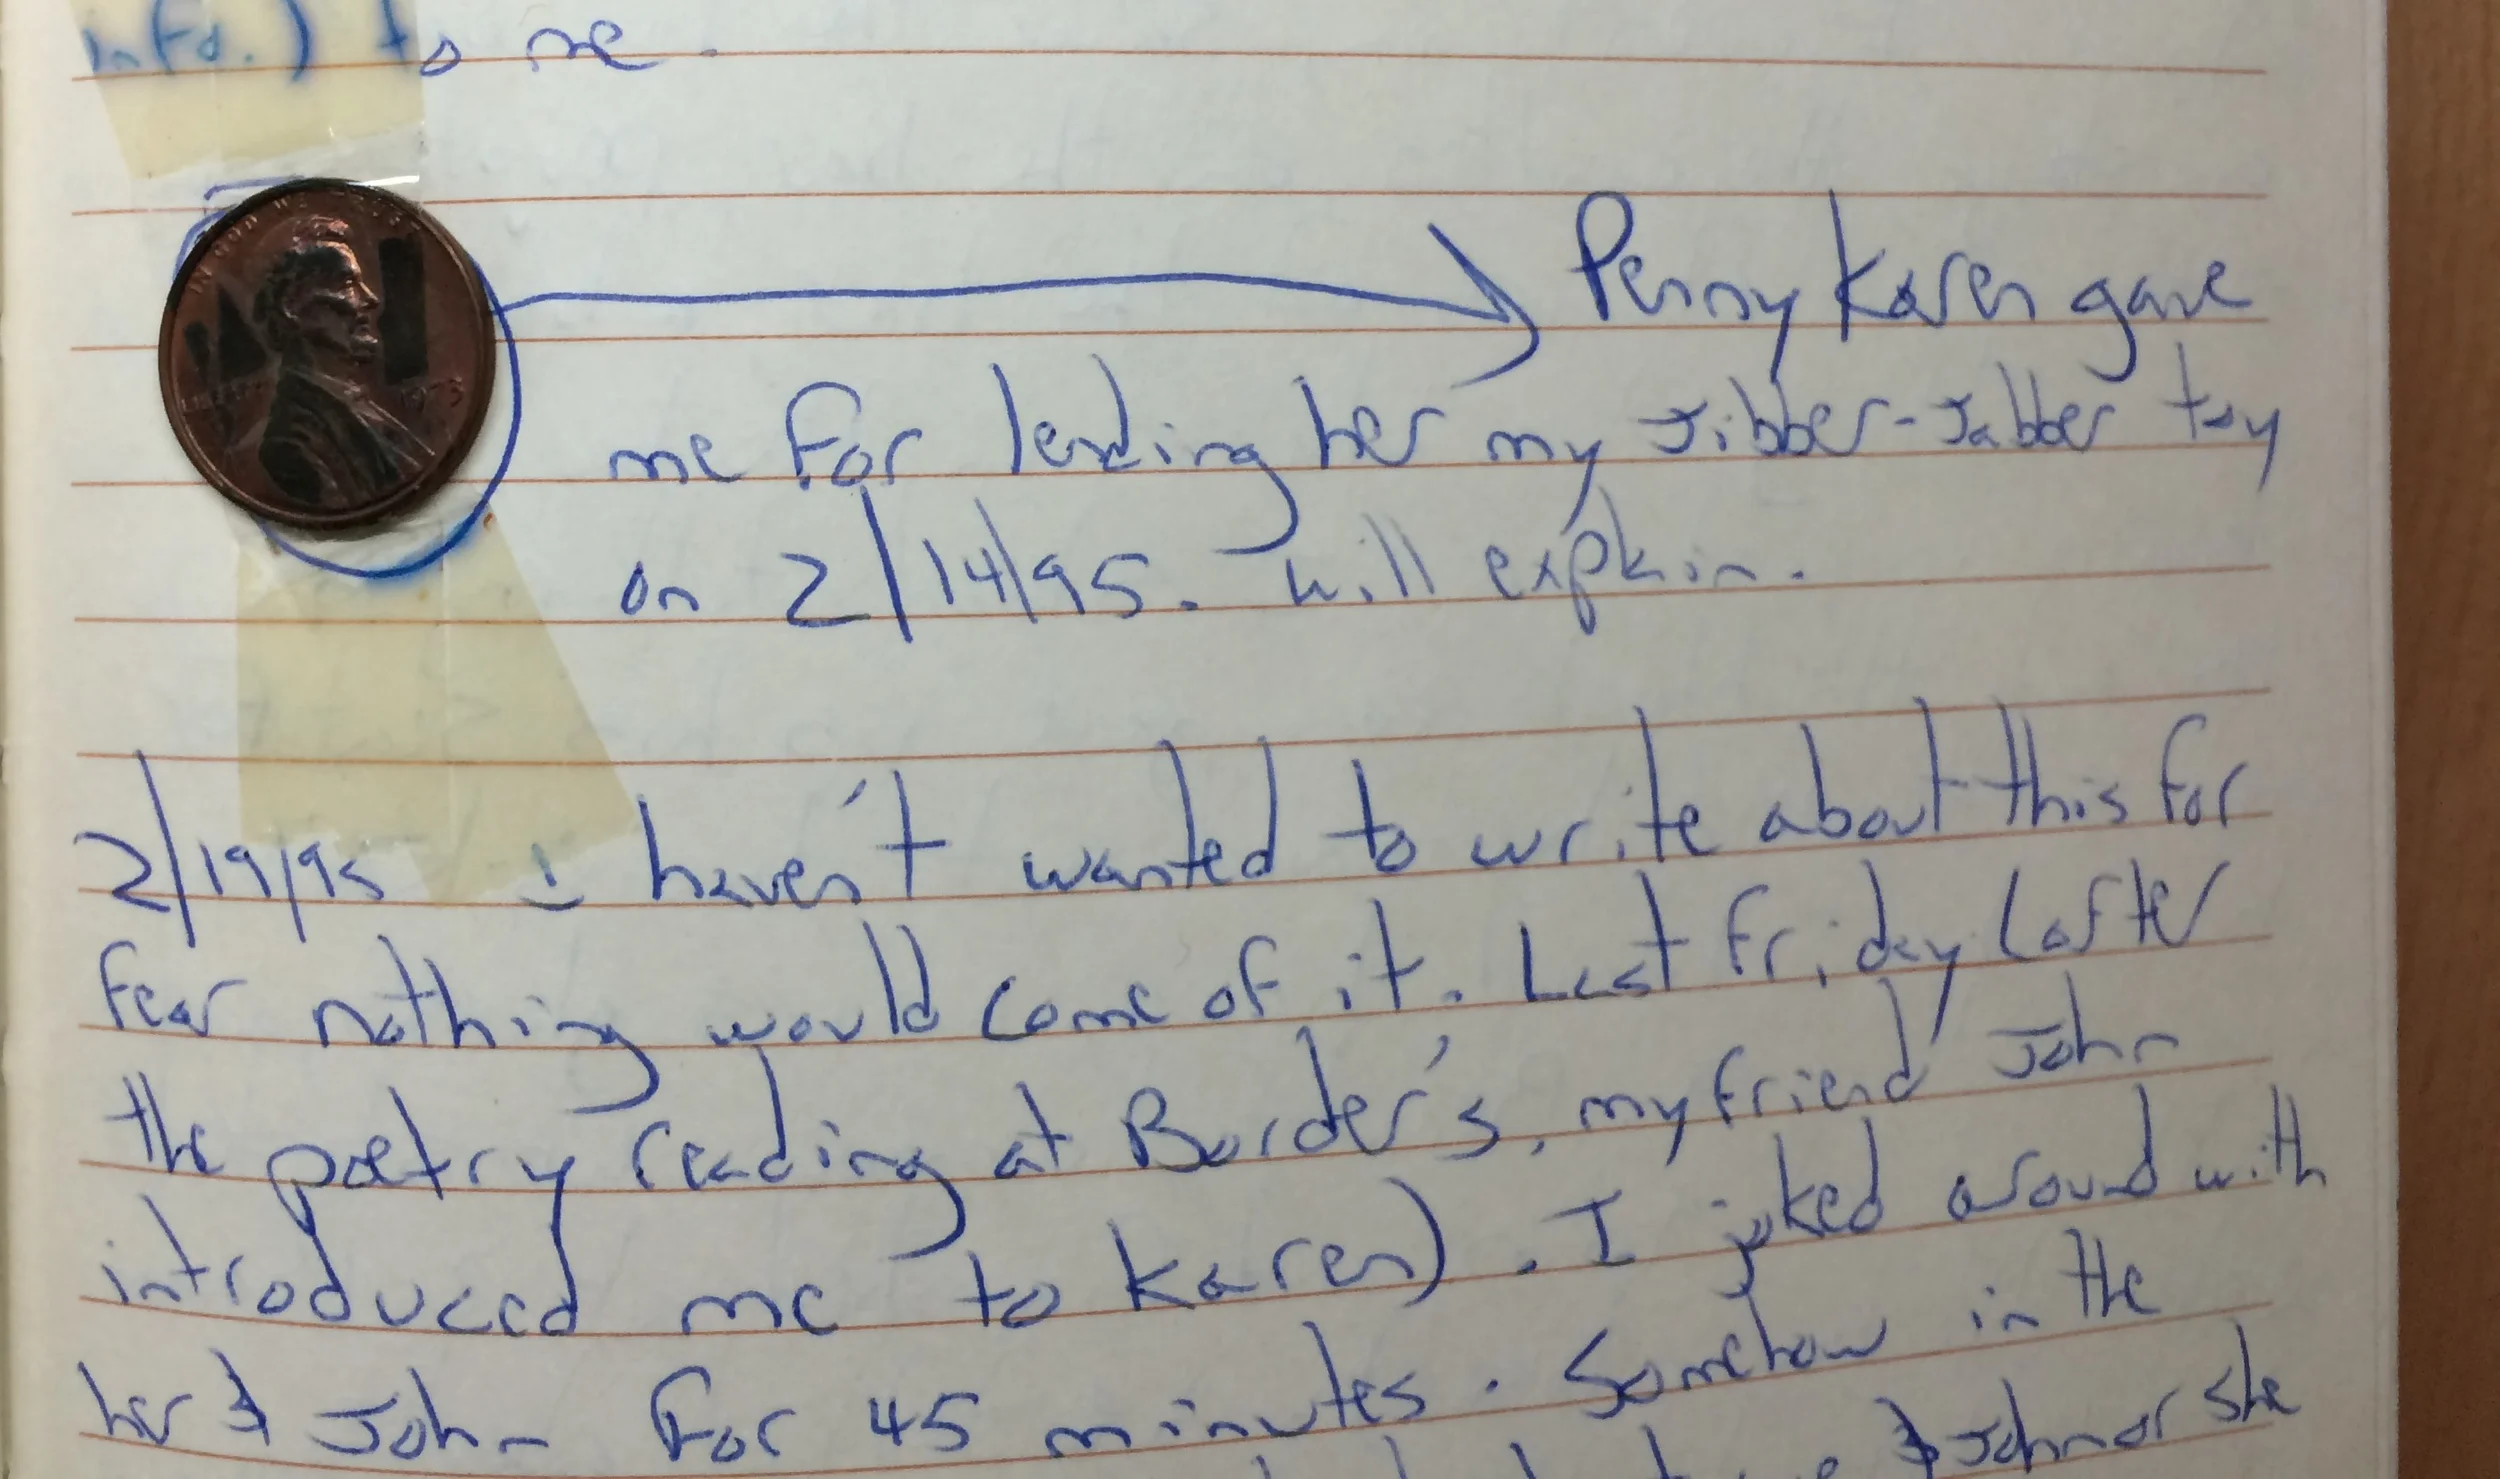 info.) to me.
IN GOD WE TRUST
LIBERTY 1973
Penny Karen gave
me for lending her my Jibber-Jabber toy
on 2/14/95. Will explain.
2/19/95 I haven't wanted to write about this for
fear nothing would come of it. Last Friday (after
the poetry reading at Border's, my friend John
introduced me to Karen). I joked around with
her & John for 45 minutes. Somehow in the
& John or she